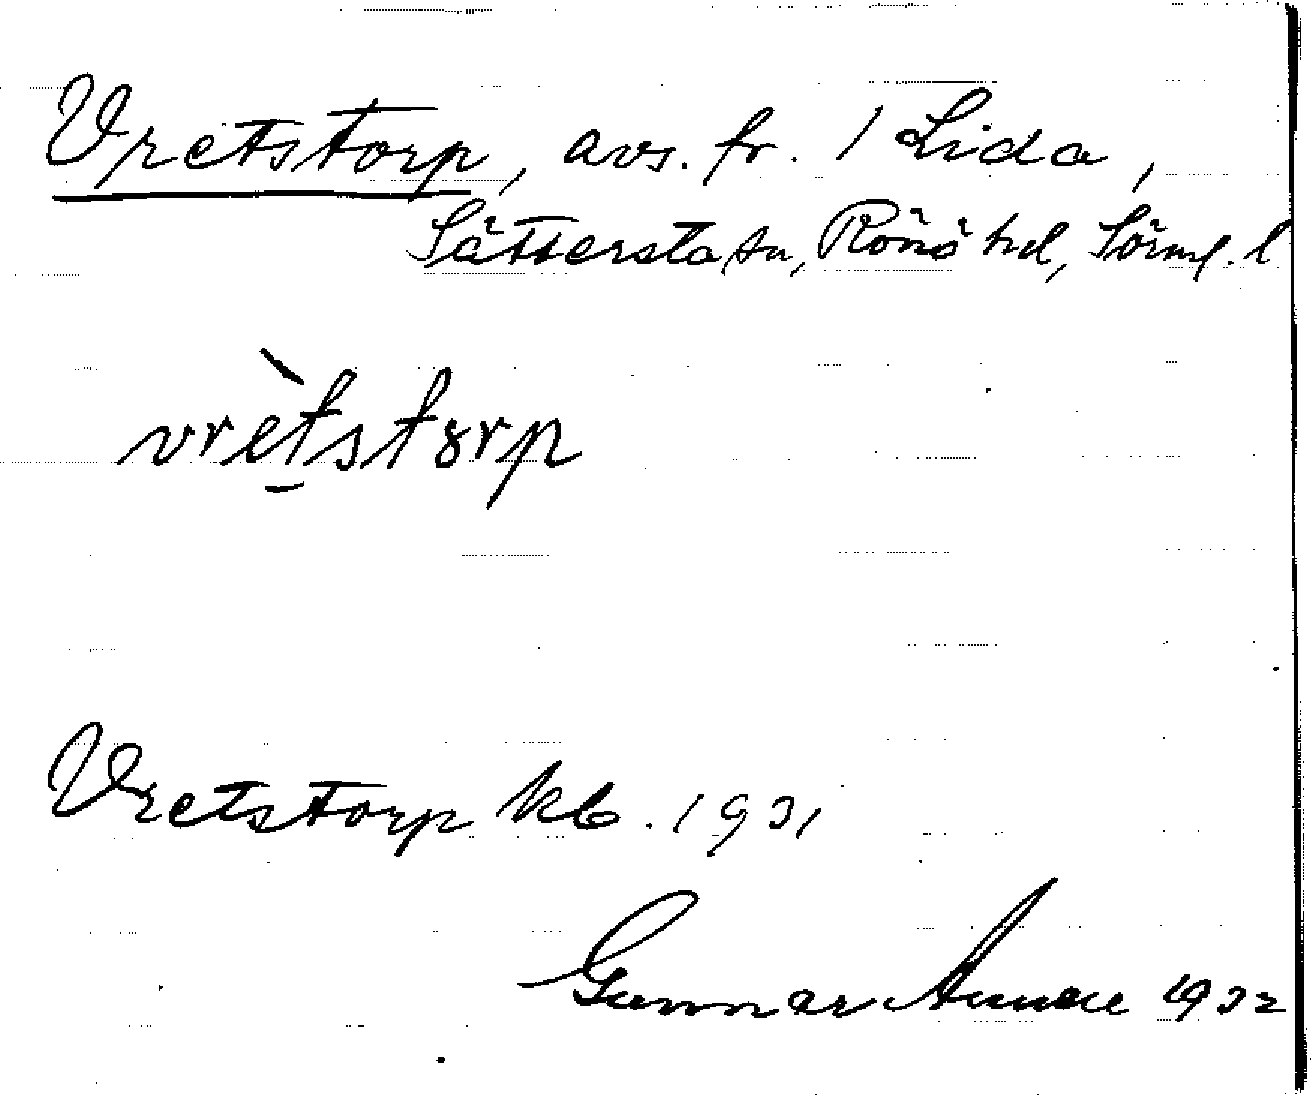 Vretstorp, avs. fr. 1 Lida,
Sättersta sn, Rönö hd, Sörml. l
vrètstorp
Vretstorp kb. 1931
Gunnar 1932